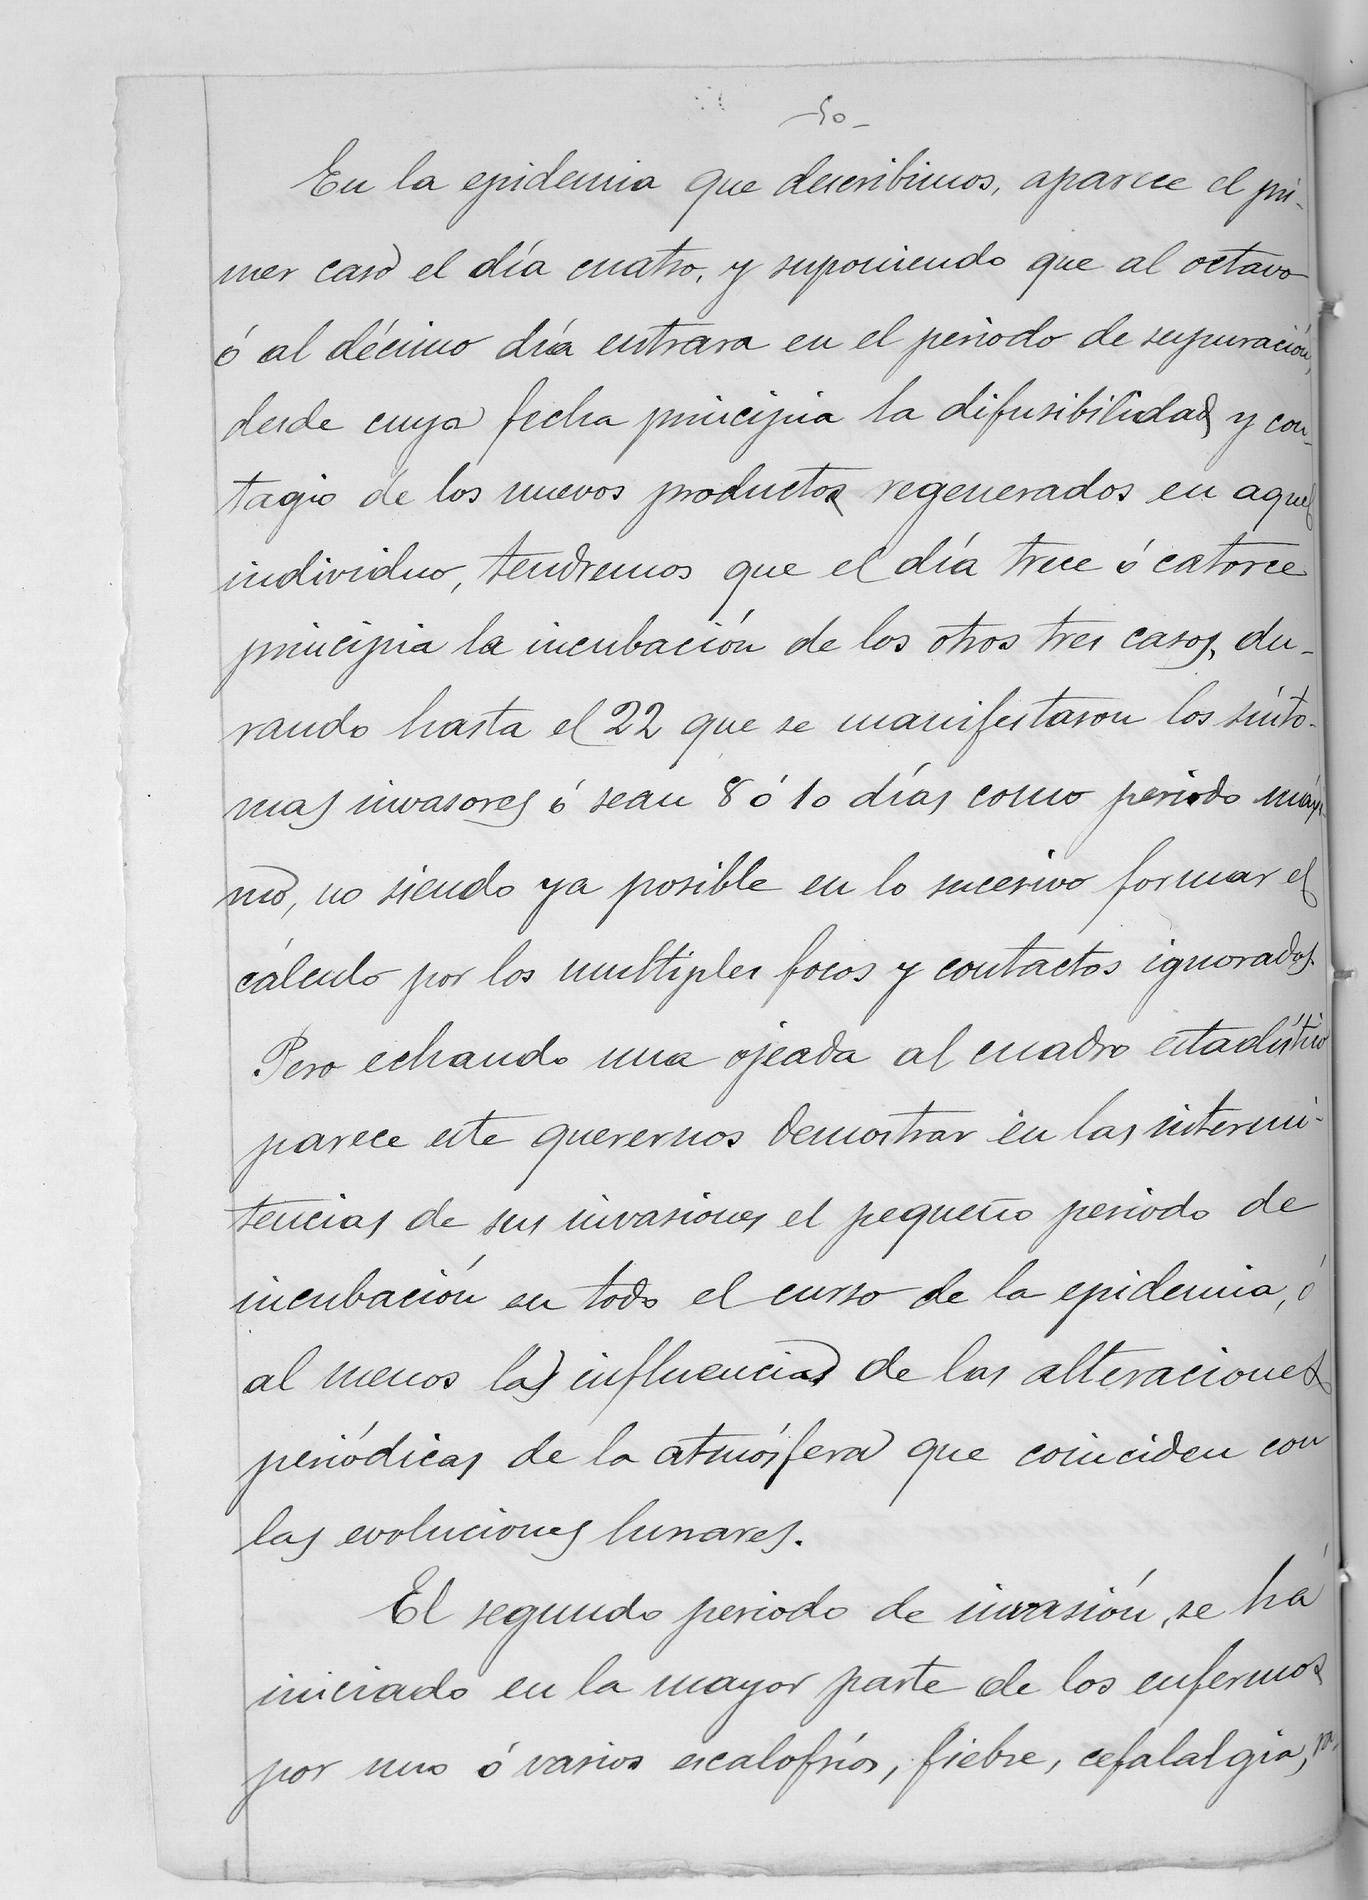 -50-
En la epidemia que describimos, aparece el pri-
mer caso el día cuatro, y suponiendo que al octavo
ó al décimo día entrara en el periodo de supuración,
desde cuya fecha principia la difusibilidad y con-
tagio de los nuevos productos regenerados en aquel
individuo, tendremos que el día trece ó catorce
principia la incubación de los otros tres casos, du-
rando hasta el 22 que se manifestaron los sínto-
mas invasores ó sean 8 ó 10 días como periodo máxi-
mo, no siendo ya posible en lo sucesivo formar el
cálculo por los multiples focos y contactos ignorados.
Pero echando una ojeada al cuadro estadístico
parece este querernos demostrar en las intermi-
tencias de sus invasiones el pequeño periodo de
incubación en todo el curso de la epidemia, ó
al menos las influencias de las alteraciones
periódicas de la atmósfera que coinciden con
las evoluciones lunares.
El segundo periodo de invasión, se há
iniciado en la mayor parte de los enfermos
por uno ó varios escalofríos, fiebre, cefalalgia,